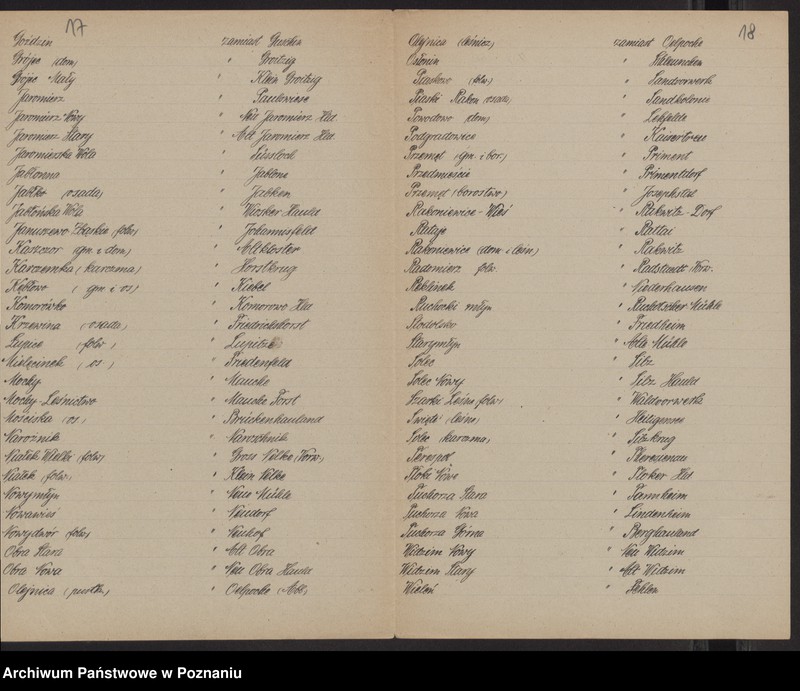 17
Goździn zamiast Gusten
Grójec (dom) " Groitzig
Grójec Mały " Klein Groitzig
Jaromierz " Paulswiese
Jaromierz Nowy " Neu Jaromierz Hld.
Jaromierz Stary " Alt Jaromierz Hld.
Jaromierska Wola
Jabłonna " Jablone
Jabłko (osada) " Jabken
Jabłońska Wola " Wiosker Hauld
Januszewo Barkie (folw) " Johannisfeld
Kaszczor (gm. i dom) " Altkloster
Karzemka (karczma) " Horstkrug
Kiełkowo (gm. i os) " Kiebel
Komorówko " Komorowo Hld
Krzewina (osada) " Friedrichshorst
Łupice (folw) " Lupitze
Mielęcinek (os.) " Friedenfeld
Mochy " Mauche
Mochy Leśnictwo " Mauche Forst
Mościska (os.) " Brückenhauland
Narożnik " Naroschnik
Niałek Wielki (folw) " Gross Nelke (Vorw.)
Niałek (folw.) " Klein Nelke
Nowymłyn " Neu Mühle
Nowawieś " Neudorf
Nowydwór (folw) " Neuhof
Obra Stara " Alt Obra
Obra Nowa " Neu Obra Hauld
Olejnica (pustk.) " Ostpoche (Abl.)
18
Olejnica (leśnicz) zamiast Ostpoche
Osłonin
Piaskowo (folw) " Sandvorwerk
Piaski Rakon. osada) " Sandkolonie
Powodowo (dom) " Lehfelde
Podgradowice " Kaisertreu
Przemęt (gm. i bor.) " Priment
Przedmieście " Primentdorf
Przemęt (borostwo) " Josephstal
Rakoniewice-Wieś " Rakwitz-Dorf
Rataje " Rattai
Rakoniewice (dom. i leśn) " Rakwitz
Radomierz folw. " Radstaedt Vorw.
Reklinek " Niederhausen
Ruchocki młyn " Ruchotscher Mühle
Stodolsko " Friedheim
Starymłyn " Alte Mühle
Solec " Silz
Solec Nowy " Silz Hauld
Szarki Leśne folw) " Waldvorwerk
Święte (leśne) " Heiligensee
Solec (karczma) " Silzkrug
Terespol " Theresienau
Tłoki Nowe " Tloker Hld
Tuchorza Stara " Tannheim
Tuchorza Nowa " Lindenheim
Tuchorza Górna " Berghauland
Widzim Nowy " Neu Widzim
Widzim Stary " Alt Widzim
Wieleń " Fehlen
Archiwum Państwowe w Poznaniu